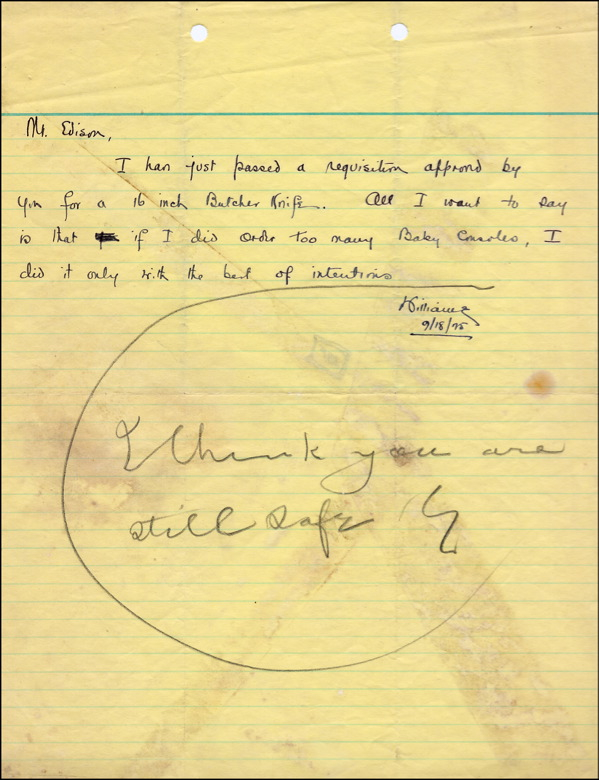 Mr. Edison,
I have just passed a requisition approved by
you for a 16 inch Butcher Knife. All I want to say
is that if I did order too many Baby Consoles, I
did it only with the best of intentions
Williams
9/18/25
I think you are
still safe